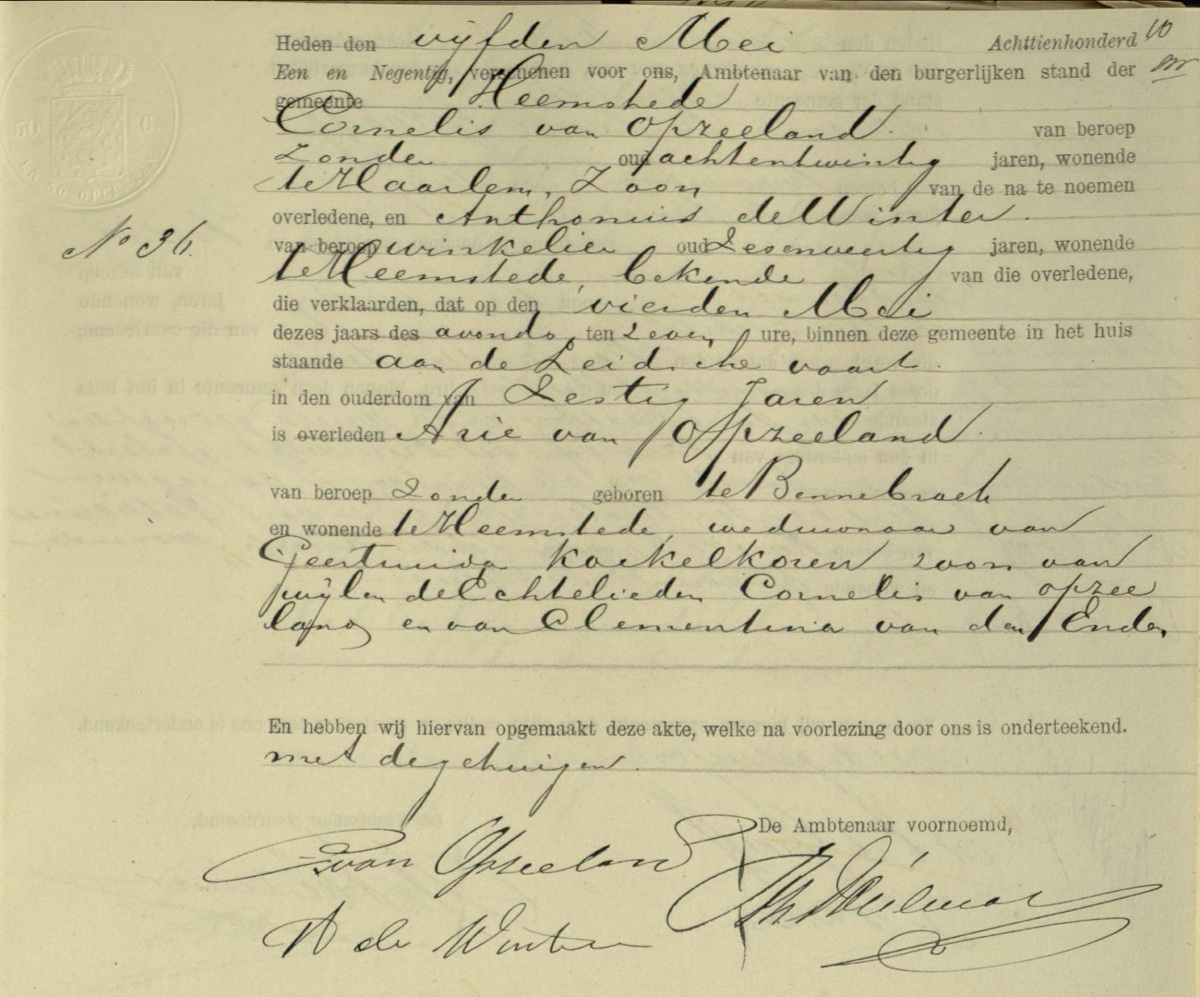 Heden den vijfden Mei Achttienhonderd
Een en Negentig, verschenen voor ons, Ambtenaar van den burgerlijken stand der
gemeente Heemstede
Cornelis van Opzeeland van beroep
zonder oud achtentwintig jaren, wonende
te Haarlem, zoon van de na te noemen
overledene, en Anthonius de Winter
No 36. van beroep winkelier oud zesenveertig jaren, wonende
te Heemstede, bekende van die overledene,
die verklaarden, dat op den vierden Mei
dezes jaars des avonds ten zeven ure, binnen deze gemeente in het huis
staande aan de Leidsche vaart
in den ouderdom van Zestig Jaren
is overleden Arie van Opzeeland
van beroep zonder geboren te Bennebroek
en wonende te Heemstede, weduwnaar van
Geertruida Koekelkoren zoon van
wijlen de Echtelieden Cornelis van Opzee
land en van Clementina van den Enden
En hebben wij hiervan opgemaakt deze akte, welke na voorlezing door ons is onderteekend.
met de getuigen.
De Ambtenaar voornoemd,
C van Opzeeland
A de Winter